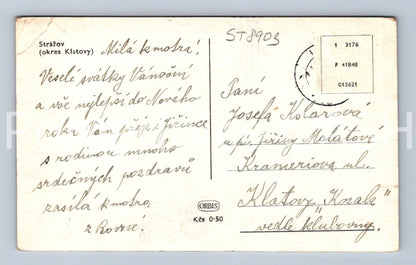 Strážov
(okres Klatovy)
Milá kmotra!
Veselé svátky Vánoční
a vše nejlepší do Nového
roku Vám přeje Jiřince
s rodinou mnoho
srdečných pozdravů
zasílá kmotra
z Rovné.
ORBIS
Kčs 0·50
ST8903
1 3176
P 41848
015621
Paní
Josefa Kolarová
u pí. Jiřiny Malátové
Krameriova ul.
Klatovy „Kozak"
vedle klubovny.